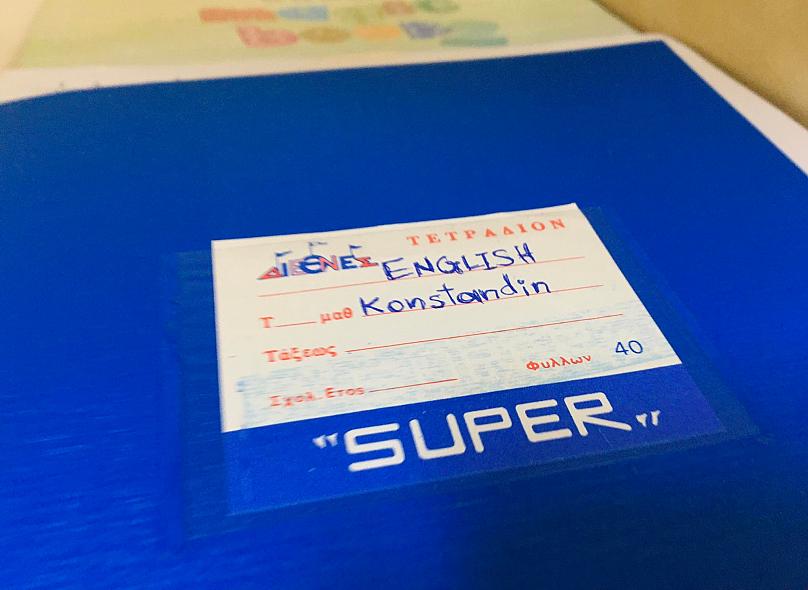 ΤΕΤΡΑΔΙΟΝ
ΔΙΕΘΝΕΣ ENGLISH
Τ____ μαθ Konstandin
Τάξεως
Σχολ. Ετος
Φυλλων 40
"SUPER"